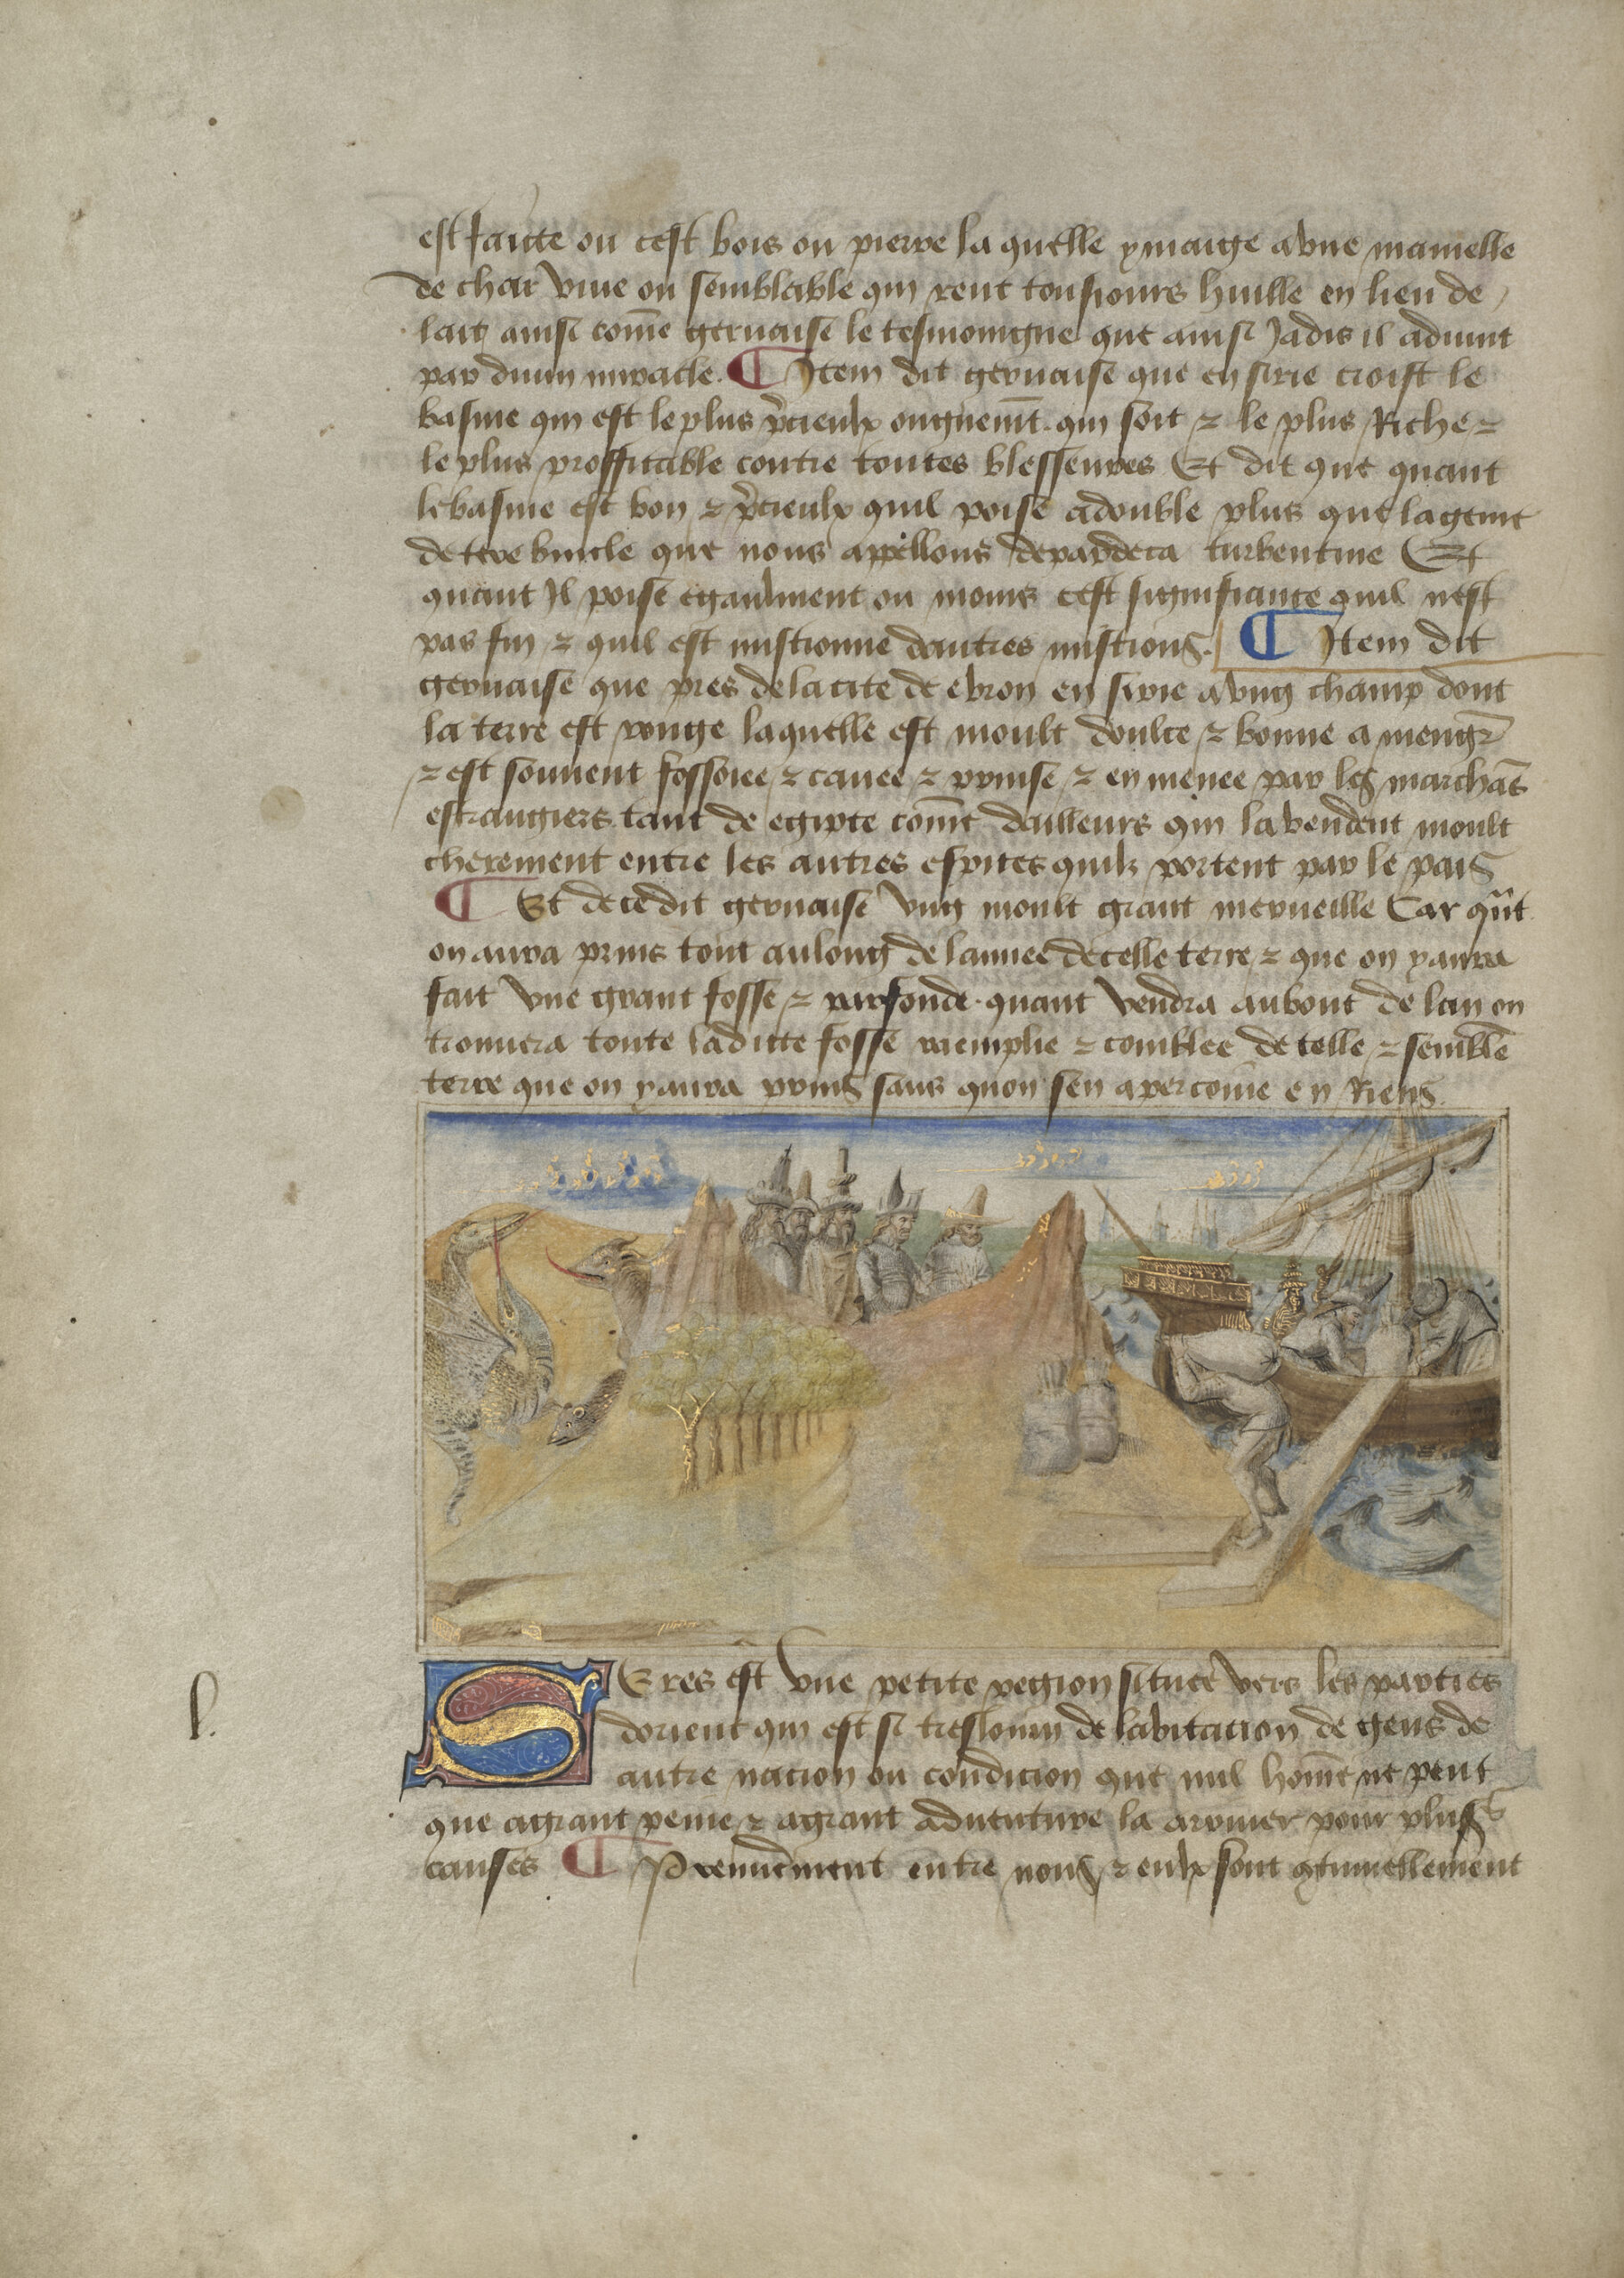 est faitte ou cest bois ou pierre la quelle ymaige a vne mamelle
de char viue ou semblable qui rent tousiours huille en lieu de
lait ainsi come geruaise le tesmoingne que ainsi Jadis il aduint
par diuin miracle. ¶ Item dit geruaise que en sirie croist le
basme qui est le plus p̃cieulx onguem̃t. qui soit ⁊ le plus Riche ⁊
le plus proffitable contre toutes blesseures Et dit que quant
le basme est bon ⁊ p̃cieulx quil poise a double plus que la gome
de tere que nous appellons depardeca turbentine Et
quant Il poise egaulment ou moins cest signifiance quil nest
pas fin ⁊ quil est mistionne dautres mistions. ¶ Item dit
geruaise que pres de la cite de ebron en sirie a vng champ dont
la terre est rouge laquelle est moult doulce ⁊ bonne a meng̃r
⁊ est souuent fossoiee ⁊ cauee ⁊ prinse ⁊ en menee par les marchãs
estrangiers. tant de egipte com̃e dailleurs qui la vendent moult
cherement entre les autres espices quilz portent par le pais
¶ Et de ce dit geruaise vng moult grant merueille Car qũt
on aura prins tout au long de lannee de celle terre ⁊ que on y aura
fait vne grant fosse ⁊ parfonde. quant vendra au bout de lan on
trouuera toute laditte fosse raemplie ⁊ comblee de telle ⁊ semblẽ
terre que on y aura prins sans quon sen apercoiue en Riens.
SEres est vne petite region situee vers les parties
dorient qui est si tresloing de labitacion de gens de
autre nacion ou condicion que nul hom̃e ne peut
que a grant peine ⁊ a grant aduenture la arriuer pour plus̃s
causes ¶ Premierement entre nous ⁊ eulx sont ɔtinuellement
s.